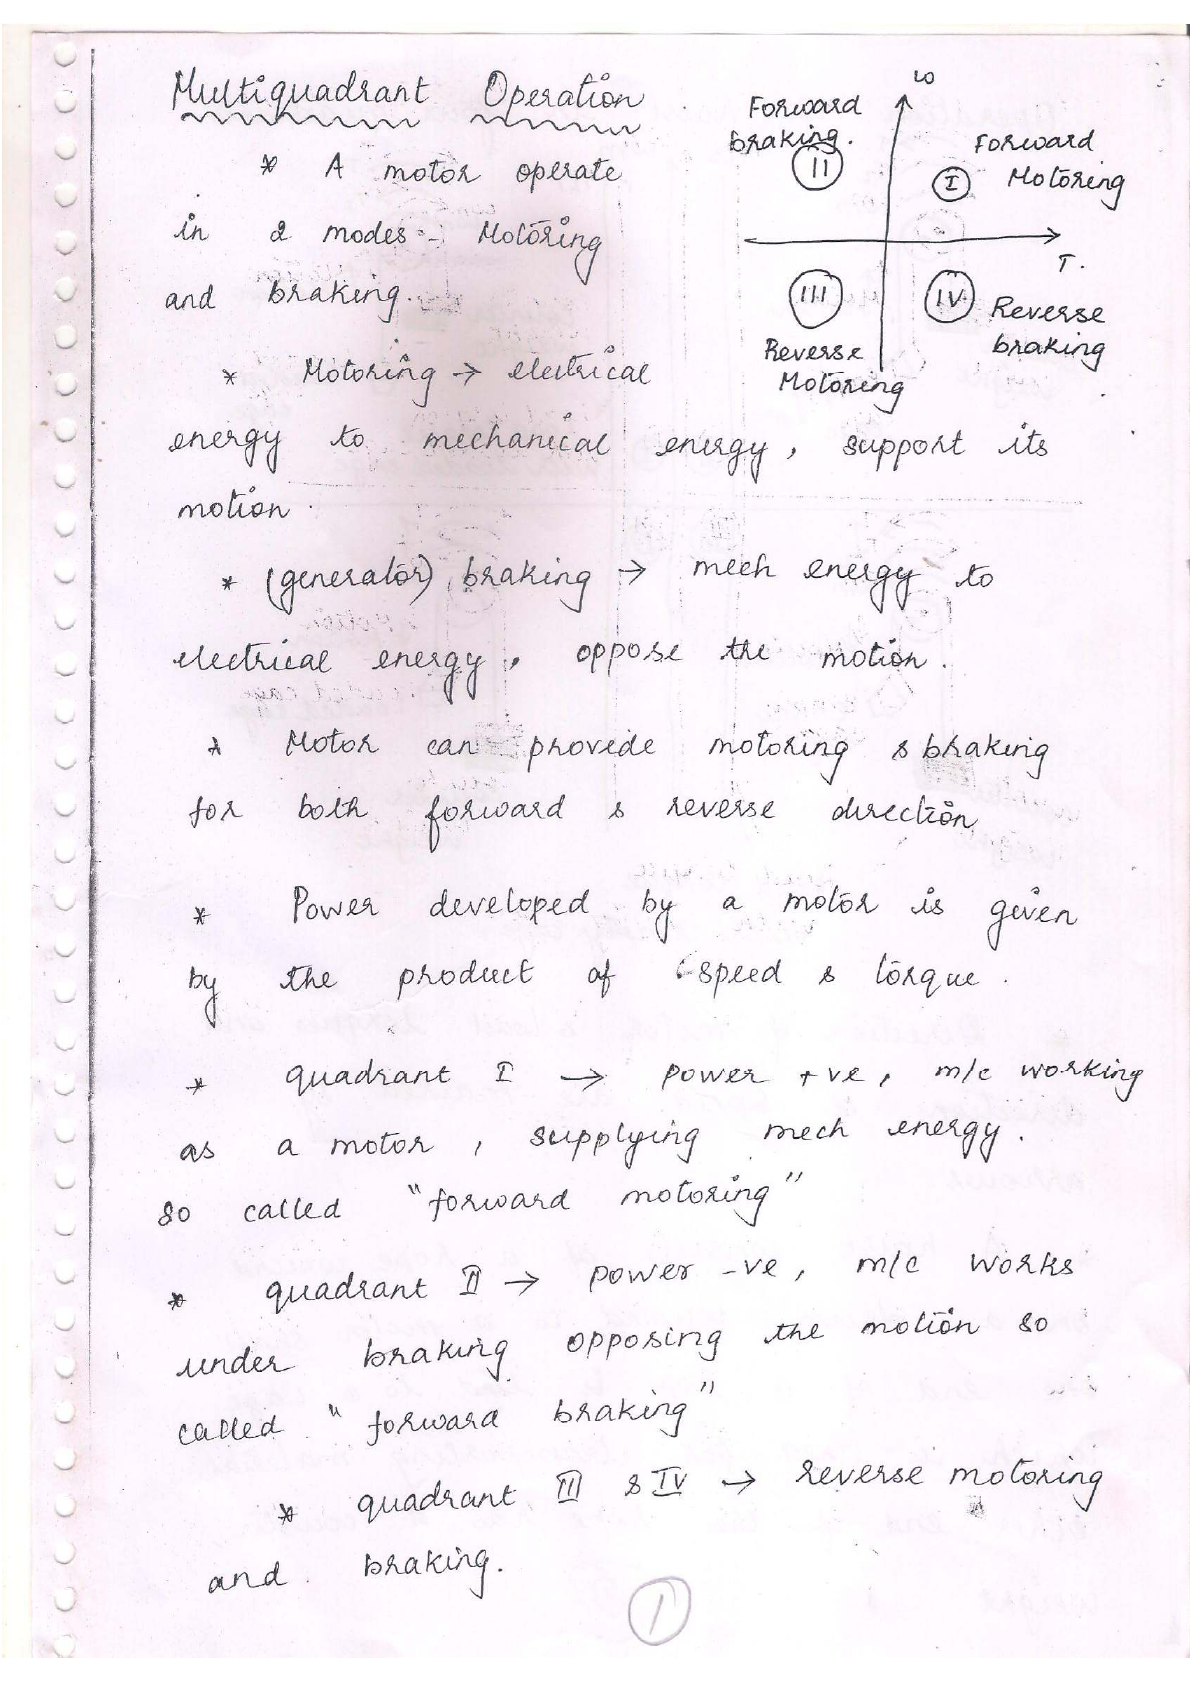 Multiquadrant Operation
ω
Forward
braking.
II
Forward
I Motoring
T.
III
Reverse
Motoring
IV Reverse
braking
* A motor operate
in 2 modes - Motoring
and braking.
* Motoring → electrical
energy to mechanical energy, support its
motion.
* (generator) braking → mech energy to
electrical energy, oppose the motion.
* Motor can provide motoring & braking
for both forward & reverse direction
* Power developed by a motor is given
by the product of speed & torque.
* quadrant I → power +ve, m/c working
as a motor, supplying mech energy.
so called "forward motoring"
* quadrant II → power -ve, m/c works
under braking opposing the motion so
called "forward braking"
* quadrant III & IV → reverse motoring
and braking.
1